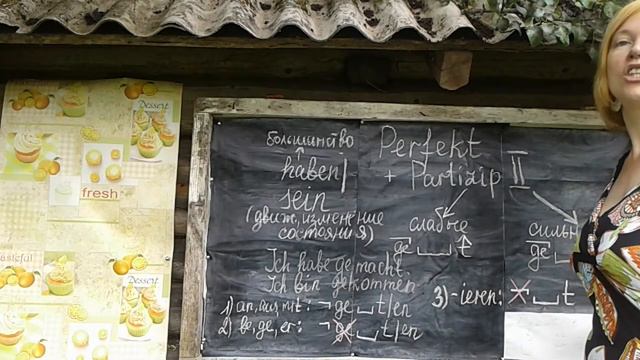 Dessert
fresh
Dessert
большинство
↑
haben
sein
(движ., изменение
состояния)
Perfekt
+ Partizip II
слабые
ge ␣ t
сильн
ge
Ich habe gemacht.
Ich bin gekommen
1) an, aus, mit: ¬ ge ␣ t/en
2) be, ge, er: ¬ ge ␣ t/en
3) -ieren: ge ␣ t